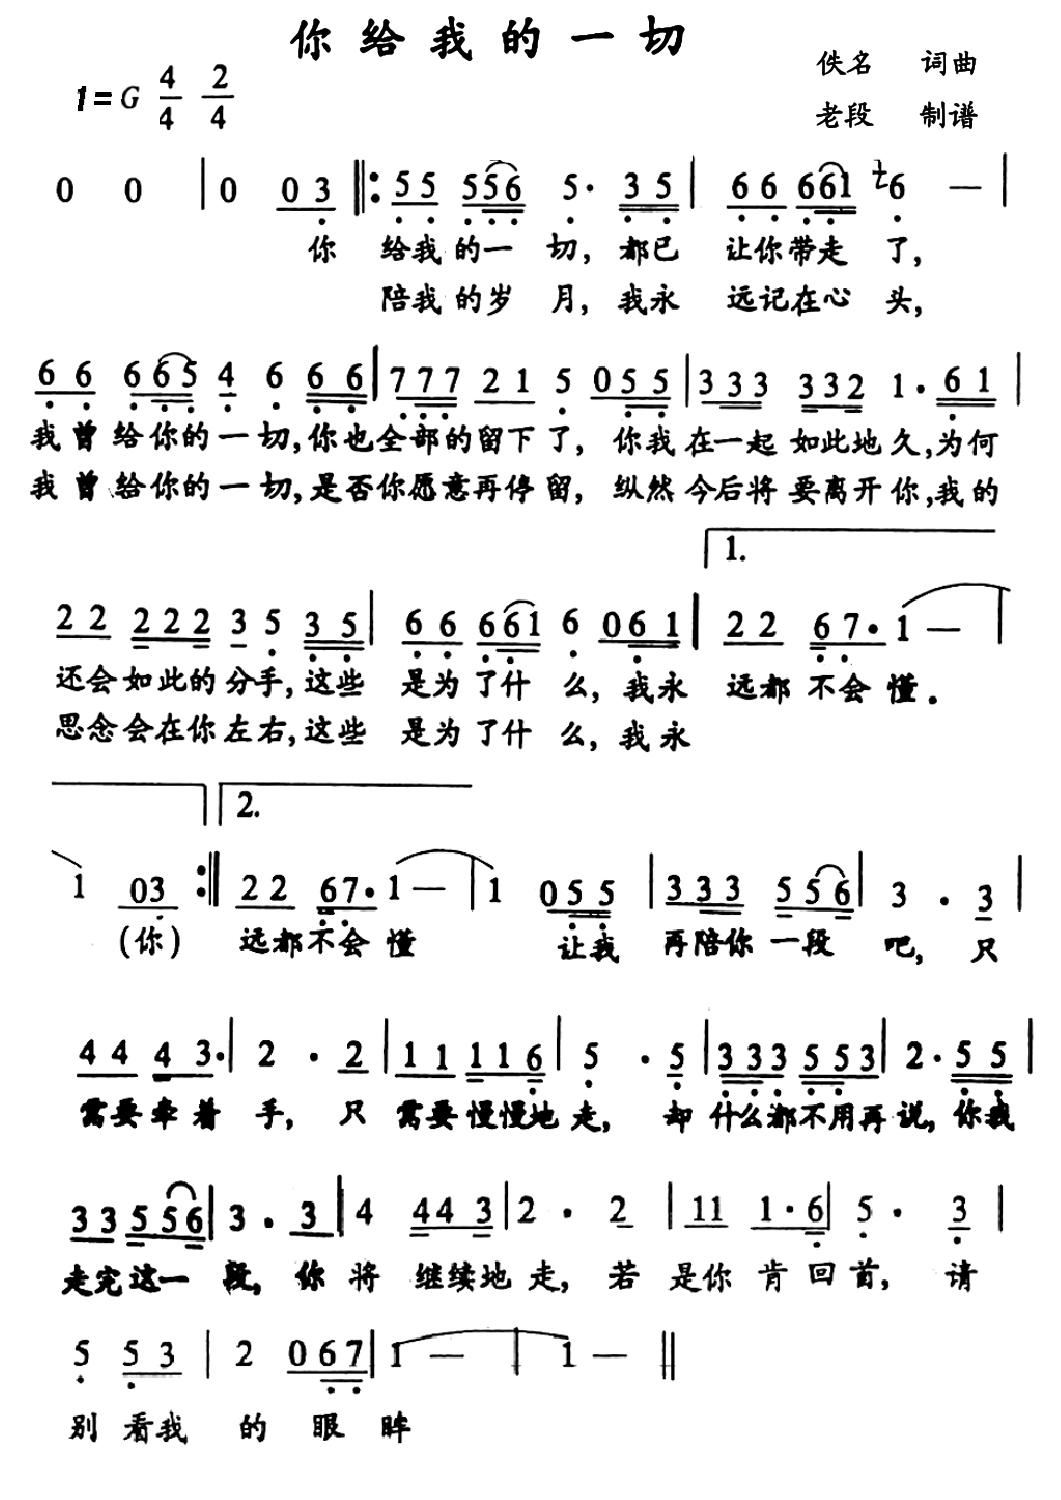 你给我的一切
佚名 词曲
1=G 4/4 2/4
老段 制谱
0 0 | 0 0 3 ‖: 5 5 5 5 6 5· 3 5 | 6 6 6 6 1 6 — |
你 给我的一 切, 都已 让你带走 了,
陪我的岁 月, 我永 远记在心 头,
6 6 6 6 5 4 6 6 6 | 7 7 7 2 1 5 0 5 5 | 3 3 3 3 3 2 1· 6 1 |
我曾给你的一切,你也全部的留下了, 你我在一起如此地久,为何
我曾给你的一切,是否你愿意再停留, 纵然今后将要离开你,我的
1.
2 2 2 2 2 3 5 3 5 | 6 6 6 6 1 6 0 6 1 | 2 2 6 7· 1 — |
还会如此的分手,这些 是为了什么,我永 远都不会懂.
思念会在你左右,这些 是为了什么,我永
2.
1 0 3 :‖ 2 2 6 7· 1 — | 1 0 5 5 | 3 3 3 5 5 6 | 3 · 3 |
(你) 远都不会懂 让我 再陪你一段 吧, 只
4 4 4 3· | 2 · 2 | 1 1 1 1 6 | 5 · 5 | 3 3 3 5 5 3 | 2· 5 5 |
需要牵着 手, 只 需要慢慢地走, 却 什么都不用再说,你我
3 3 5 5 6 | 3 · 3 | 4 4 4 3 | 2 · 2 | 1 1 1·6 | 5 · 3 |
走完这一 段, 你 将 继续地走, 若 是你肯回首, 请
5 5 3 | 2 0 6 7 | 1 — | 1 — ‖
别看我 的眼眸